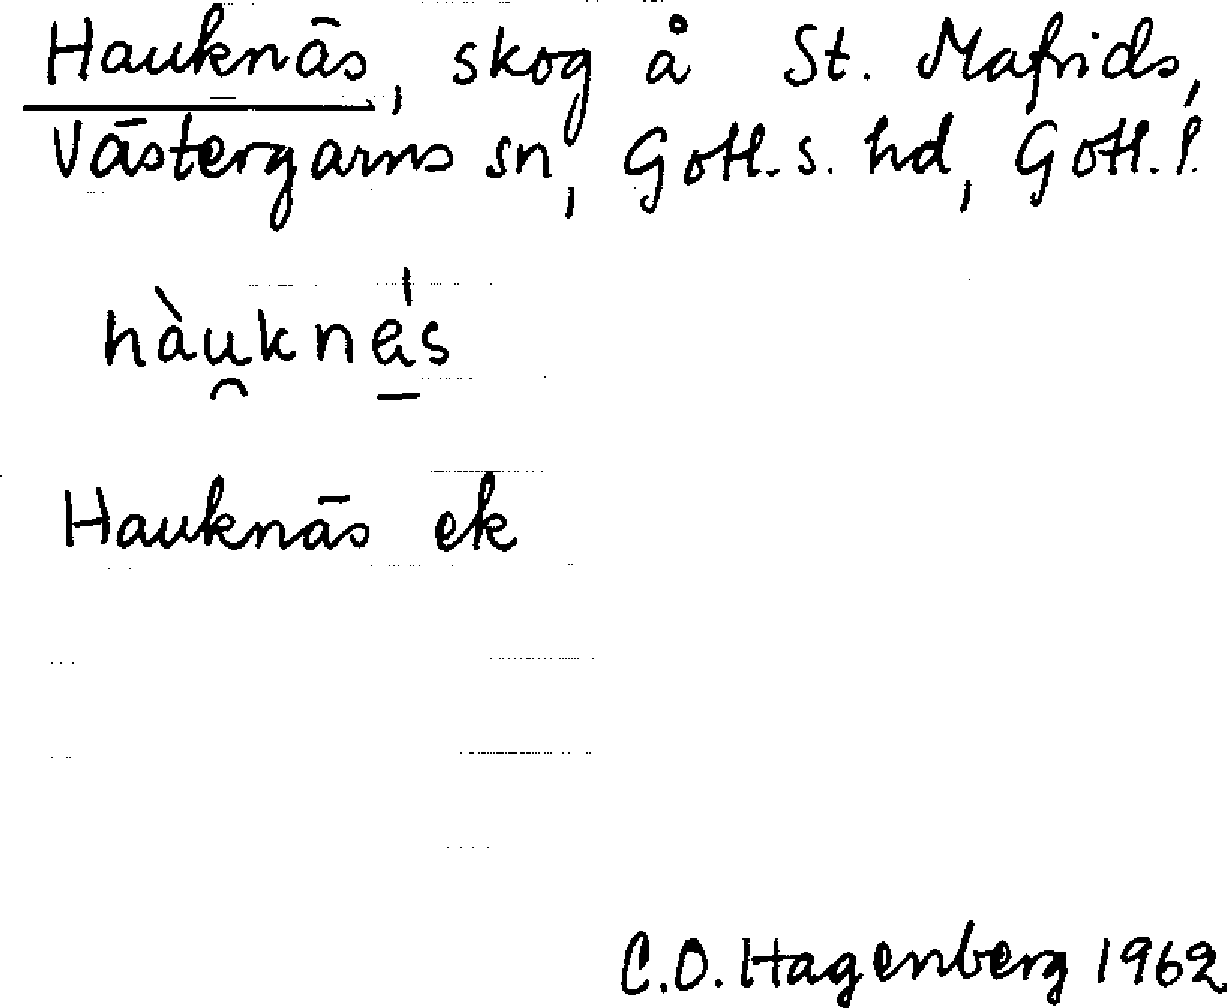 Hauknäs, skog å St. Mafrids,
Västergarns sn, Gotl. s. hd, Gotl. l.
hàu̯knä̲́s
Hauknäs ek
C.O. Hagenberg 1962